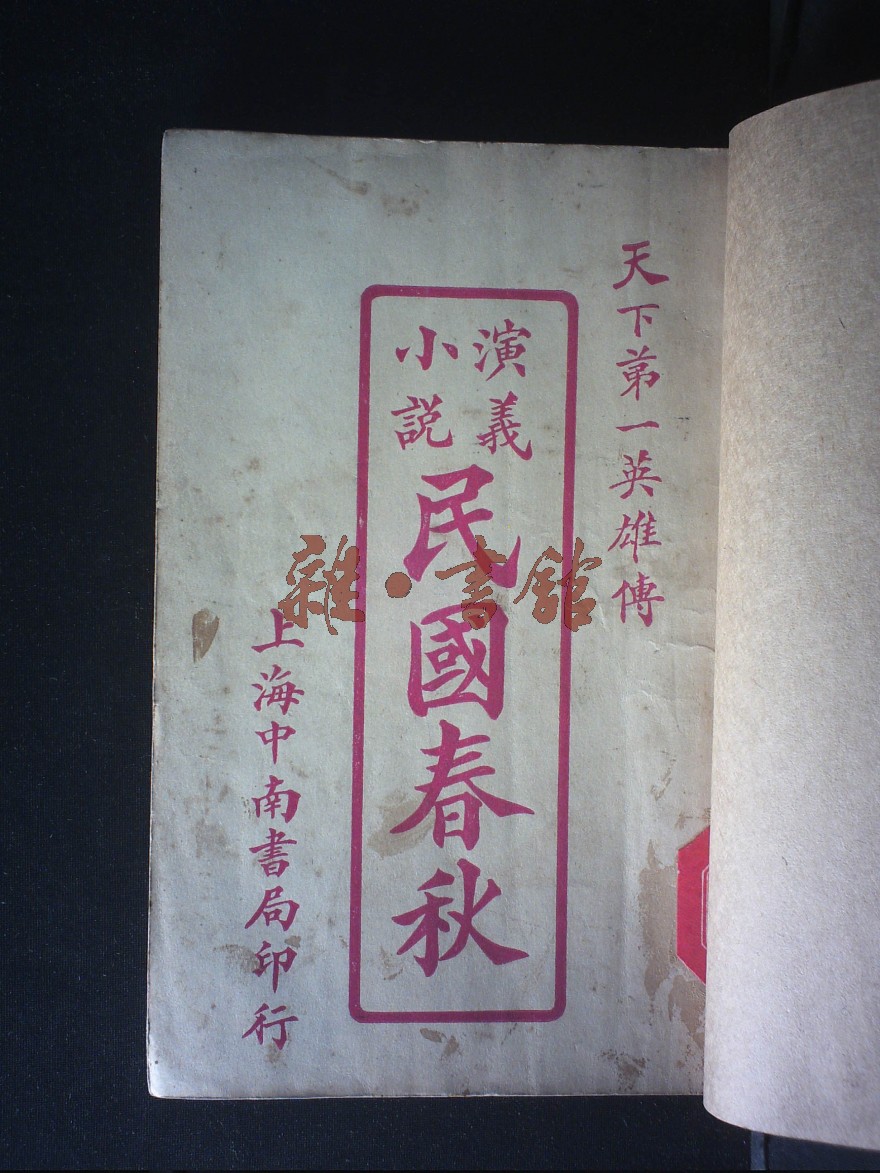 天下第一英雄傳
演義
小説
民國春秋
上海中南書局印行
雜·書館